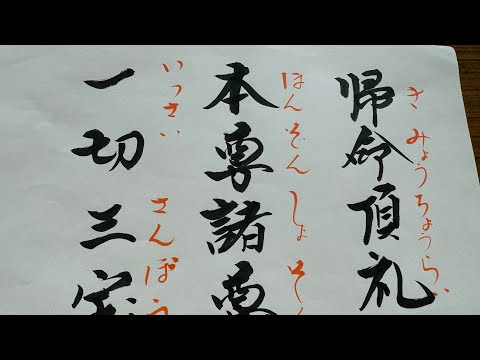 帰命頂礼
きみょうちょうらい
本尊諸尊
ほんぞんしょそ
一切三宝
いっさいさんぽう